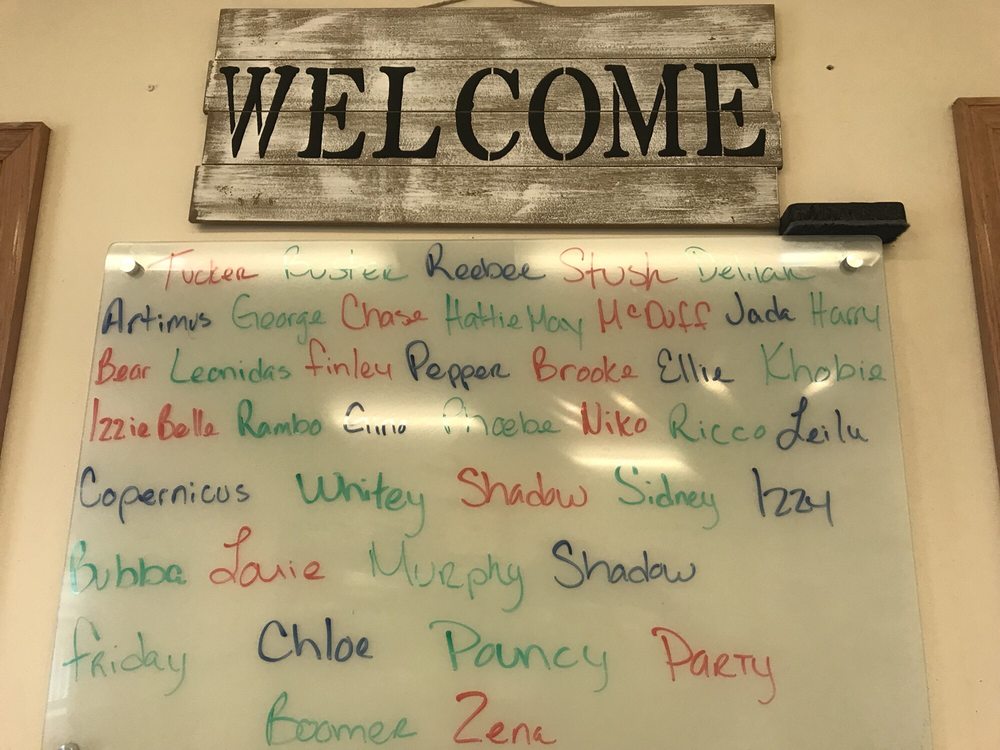 WELCOME
Tucker Ruster Reebee Stush Delilah
Artimus George Chase Hattie May McDuff Jada Harry
Bear Leonidas finley Pepper Brooke Ellie Khobie
Izzie Belle Rambo Phoebe Niko Ricco Leilu
Copernicus Whitey Shadow Sidney Izzy
Bubba Louie Murphy Shadow
friday Chloe Pouncy Party
Boomer Zena